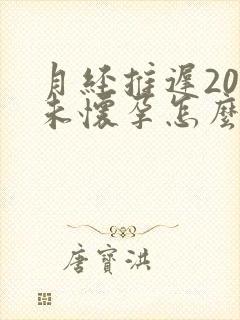 月经推遲20
未懷孕怎麼
唐寶洪